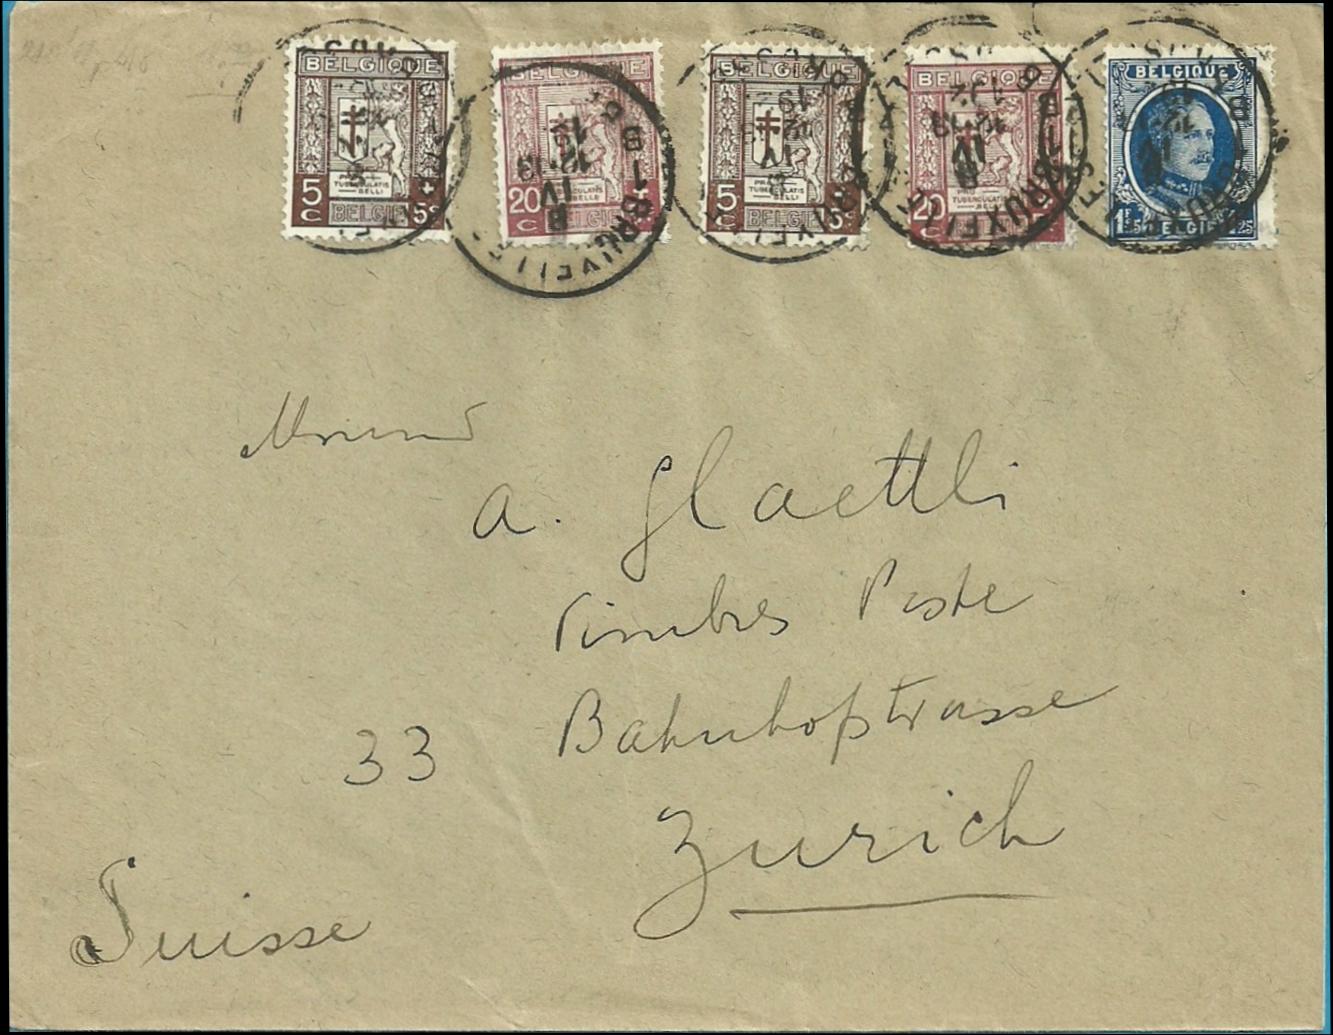 BELGIQUE 5 c + 5 c PRO TUBERCULATIS BELLI BELGIE
BELGIQUE 20 c BELGIE
BELGIQUE 5 c 5 c PRO TUBERCULATIS BELLI BELGIE
BELGIQUE 20 c TUBERCULATIS BELLI
BELGIQUE 1F 25 BELGIE 1F 25
BRUXELLES BRUSSEL
8 IV 12-13
Monsieur
A. Glaettli
Timbres Poste
33 Bahnhofstrasse
Zurich
Suisse